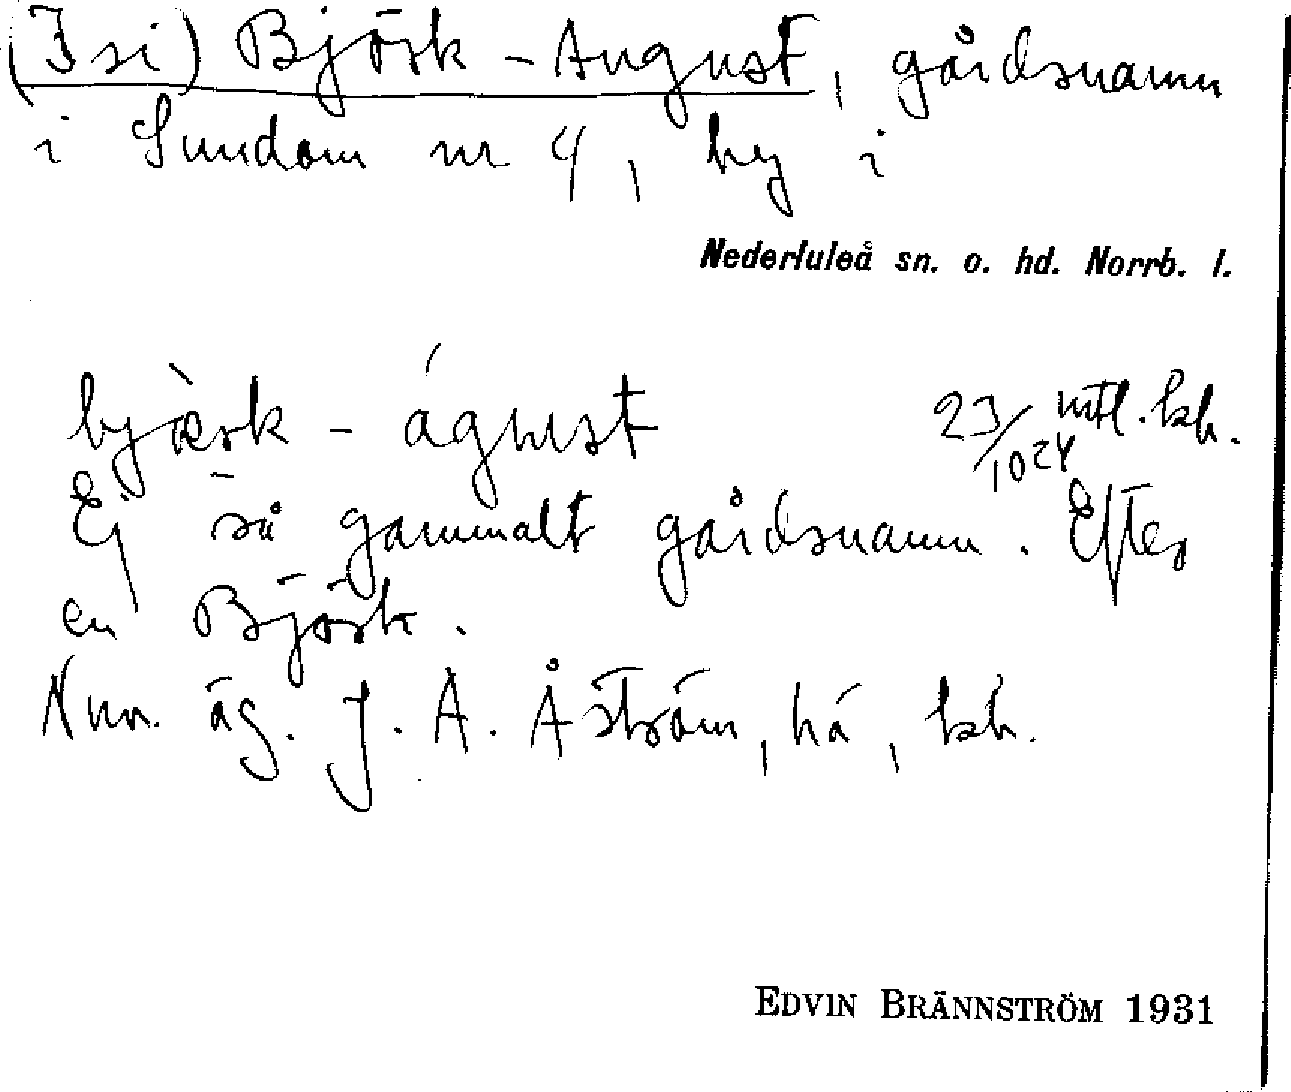 (Isi) Björk-August, gårdsnamn
i Sundom nr 4, by i
Nederluleå sn. o. hd. Norrb. l.
bjàrk - águst 23/1024 mtl. kh.
Ej så gammalt gårdsnamn. Efter
en Björk.
Nuv. äg. J. A. Åström, há, kh.
EDVIN BRÄNNSTRÖM 1931